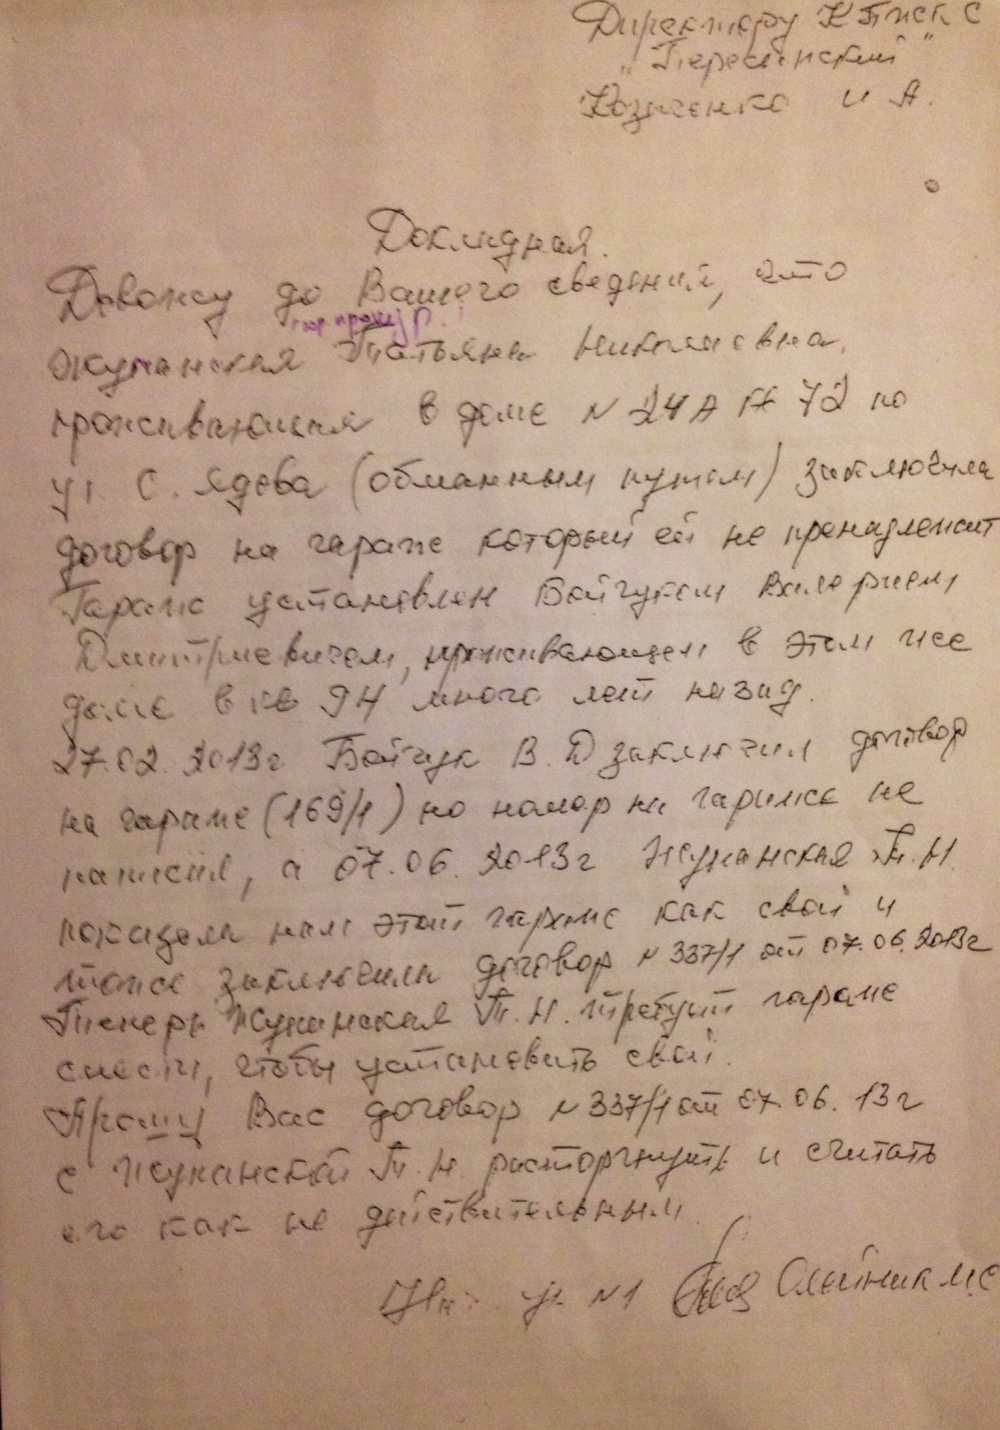 Директору КП ЖКС
"Пересыпский"
Козаченко И А.
Докладная.
Довожу до Вашего сведений, что
Жупанская Татьяна Николаевна,
проживающая в доме № 24А кв 72 по
ул. С. Ядова (обманным путем) заключила
договор на гараж который ей не пренадлежит
Гараж установлен Бойчуком Валерием
Дмитриевичем, проживающем в этом же
доме в кв 94 много лет назад.
27.02.2013г Бойчук В.Д заключил договор
на гараж (169/1) но номер на гараже не
написал, а 07.06.2013г Жупанская Т.Н.
показала нам этот гараж как свой и
тоже заключили договор № 337/1 от 07.06.2013г
Теперь Жупанская Т.Н. требует гараж
снести, чтобы установить свой.
Прошу Вас договор № 337/1 от 07.06.13г
с Жупанской Т.Н. расторгнуть и считать
его как не действительным.
уч №1 Олейник М.С